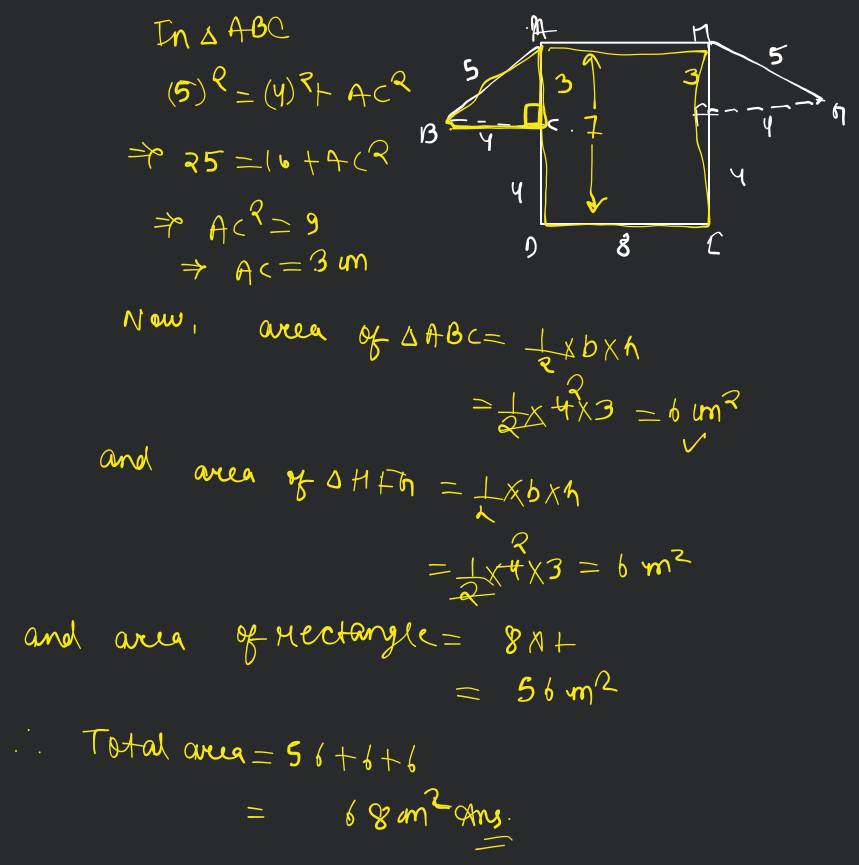 In △ ABC
(5)² = (4)² + AC²
⇒ 25 = 16 + AC²
⇒ AC² = 9
⇒ AC = 3 cm
A H
5 3 3 5
B 4 C 7 F 4 G
4 4
D 8 E
Now, area of △ABC = 1/2 × b × h
= 1/2 × 4 2 × 3 = 6 cm² ✓
and area of △HFG = 1/2 × b × h
= 1/2 × 4 2 × 3 = 6 m²
and area of rectangle = 8 × 7
= 56 m²
∴ Total area = 56 + 6 + 6
= 68 cm² Ans.